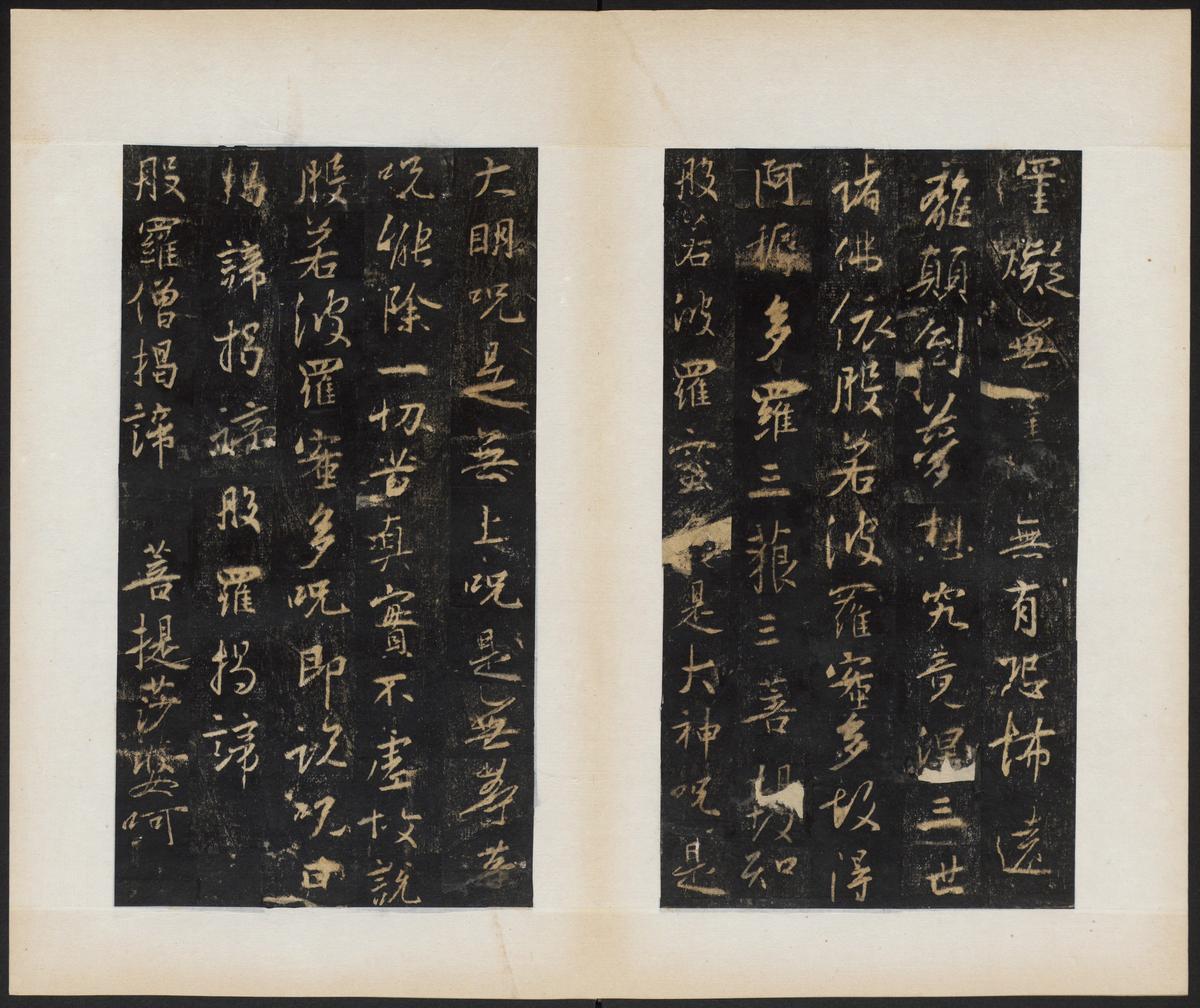 罣礙無罣無有恐怖遠
離顛倒夢想究竟涅三世
諸佛依般若波羅蜜多故得
阿耨多羅三藐三菩提故知
般若波羅蜜多是大神呪是
大明呪是無上呪是無等等
呪能除一切苦真實不虛故說
般若波羅蜜多呪即說呪曰
揭諦揭諦般羅揭諦
般羅僧揭諦 菩提莎婆呵